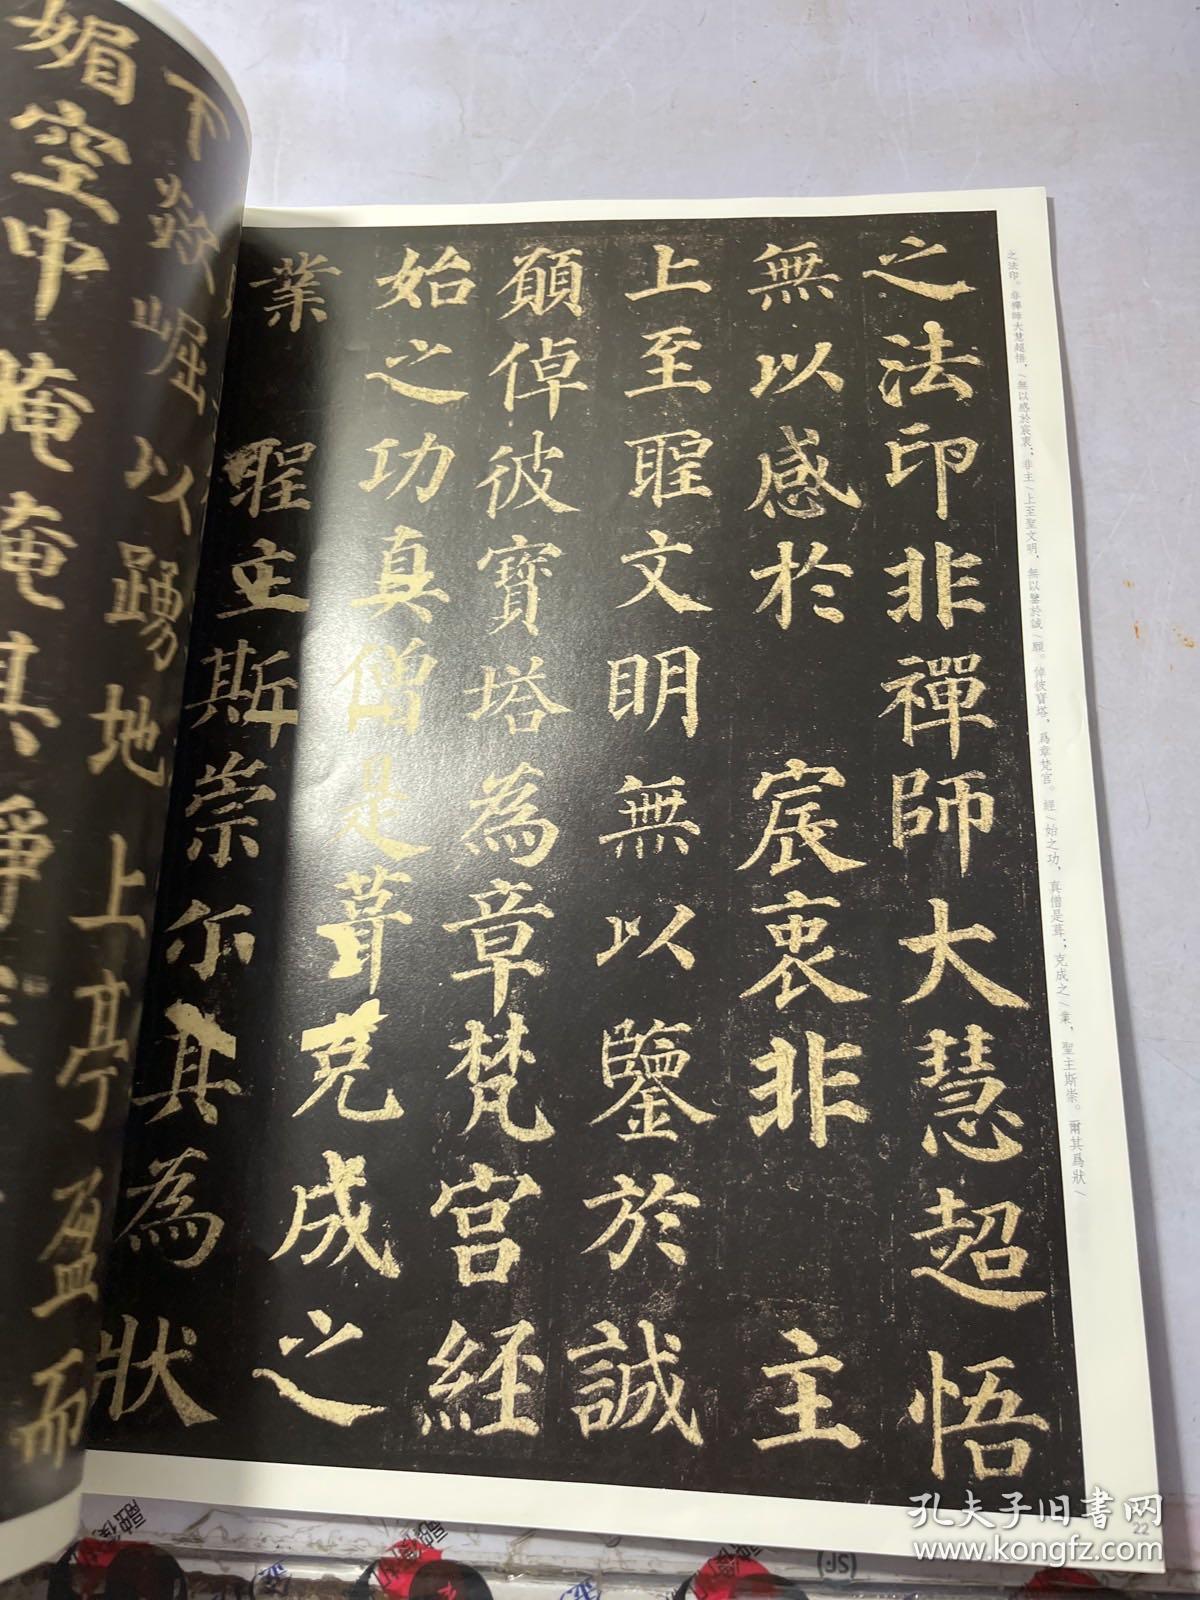 之法印非禪師大慧超悟
無以感於宸衷非主
上至聖文明無以鑒於誠
願倬彼寶塔為章梵宮經
始之功真僧是葺克成之
業聖主斯崇尔其為狀
之法印。非禪師大慧超悟,/無以感於宸衷;非主/上至聖文明,無以鑒於誠/願。倬彼寶塔,爲章梵宮。經/始之功,真僧是葺;克成之/業,聖主斯崇。爾其爲狀/
22
下欻崛以踴地上亭盈而
媚空中晻晻其靜
孔夫子旧书网
www.kongfz.com